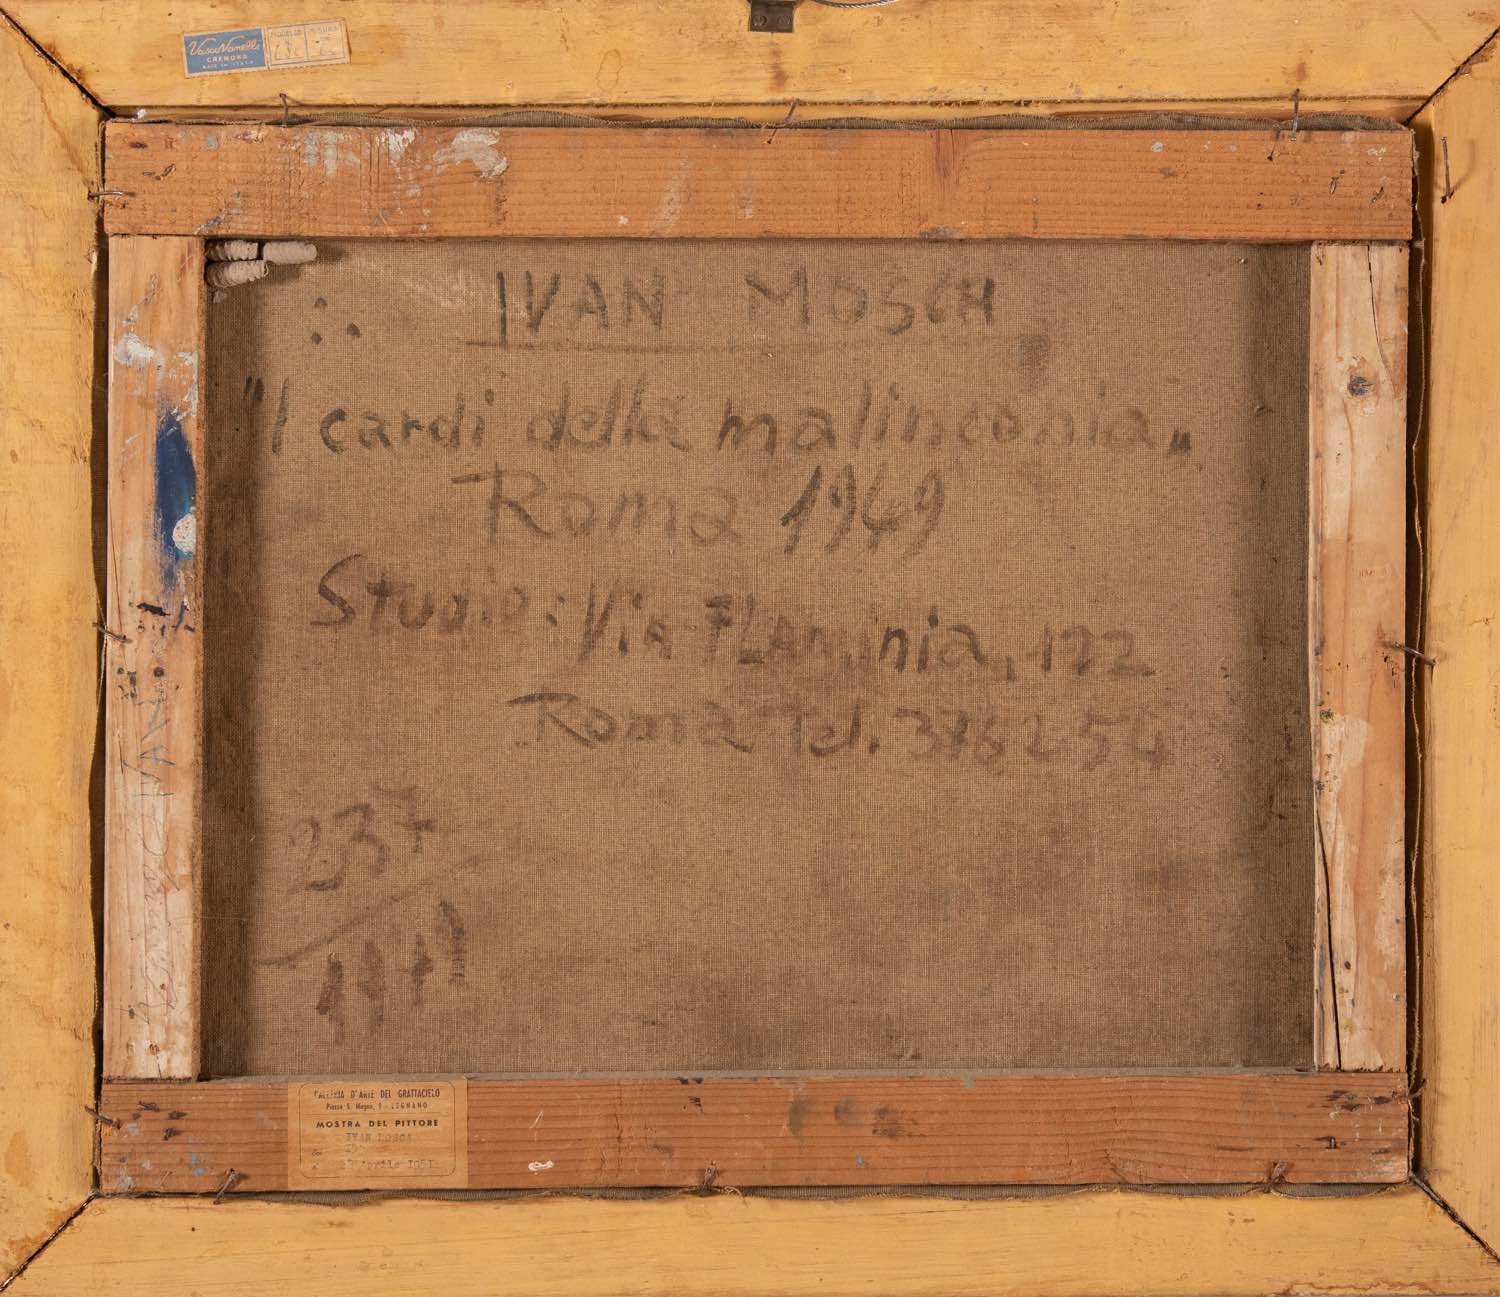 Vasco Vanelli
CREMONA
MADE IN ITALY
MODELLO
MISURA
IVAN MOSCH
"I cardi della malinconia"
Roma 1949
Studio: Via FLAMinia, 122
Roma Tel. 376254
IVAN
GALLERIA D'ARTE DEL GRATTACIELO
Piazza S. Magno, 9 - LEGNANO
MOSTRA DEL PITTORE
IVAN MOSCA
aprile 1951